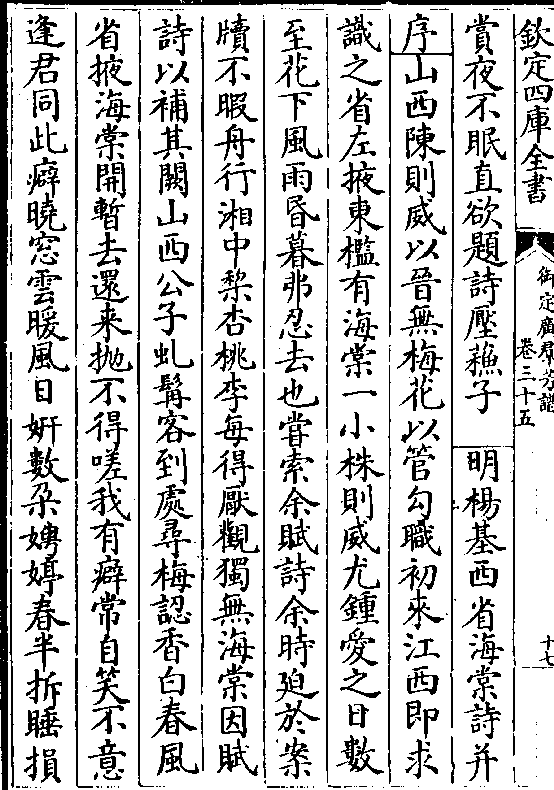 欽定四庫全書
御定廣群芳譜
卷三十五
十七
賞夜不眠直欲題詩壓蘓子
明楊基西省海棠詩并
序山西陳則威以晉無梅花以管勾職初來江西即求
識之省左掖東檻有海棠一小株則威尤鍾愛之日數
至花下風雨昏暮弗忍去也嘗索余賦詩余時廹於案
牘不暇舟行湘中梨杏桃李每得厭觀獨無海棠因賦
詩以補其闕山西公子虬髯客到處尋梅認香白春風
省掖海棠開暫去還来抛不得嗟我有癖常自笑不意
逢君同此癖曉窓雲暖風日妍數朶娉婷春半拆睡損